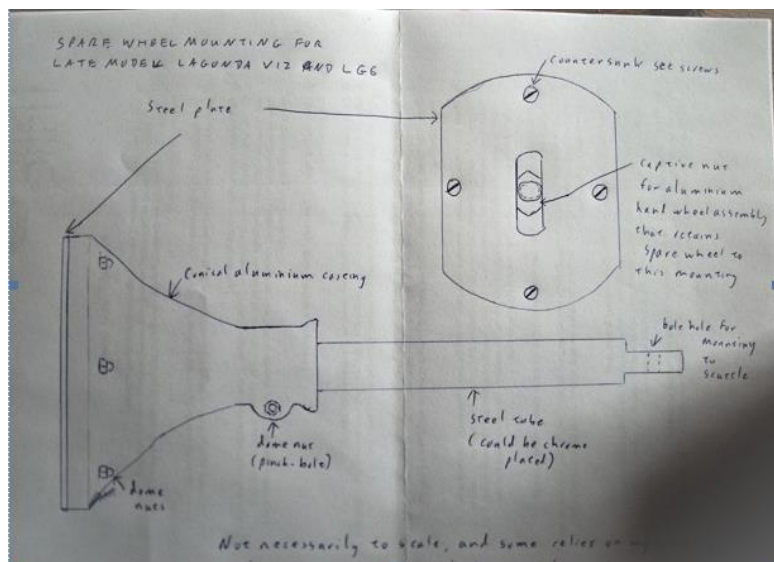 SPARE WHEEL MOUNTING FOR
LATE MODEL LAGONDA V12 AND LG6
countersunk set screws
Steel plate
captive nut
for aluminium
hand wheel assembly
that retains
spare wheel to
this mounting
Conical aluminium casing
bolt hole for
mounting
to
scuttle
steel tube
(could be chrome
plated)
dome nut
(pinch-bolt)
dome
nuts
Not necessarily to scale, and some relies on my